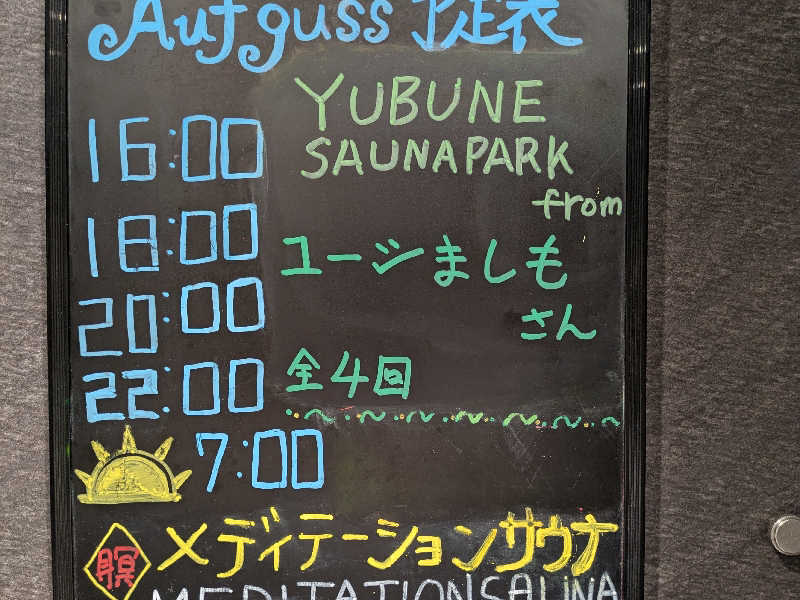 Aufguss 予定表
YUBUNE
16:00
SAUNAPARK
from
18:00
ユージましも
20:00
さん
22:00
全4回
7:00
瞑 メディテーションサウナ
MEDITATIONSAUNA